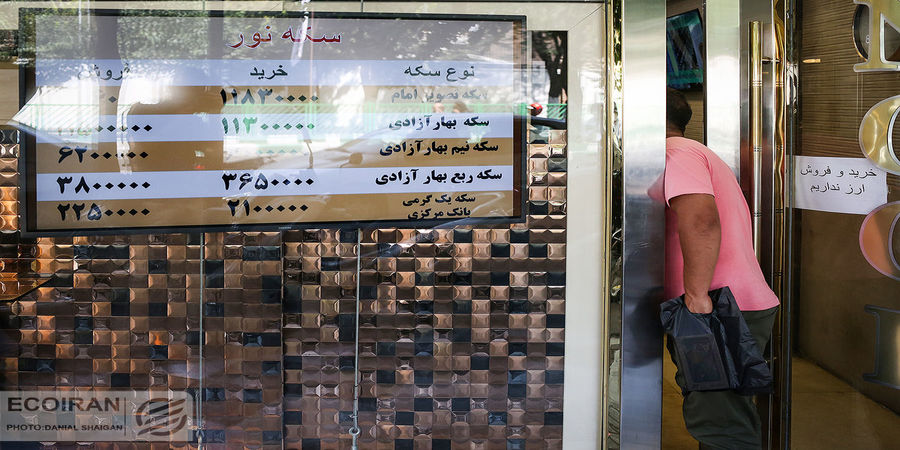 سکه نور
نوع سکه خرید فروش
سکه تصویر امام ۱۱۸۳۰۰۰۰
سکه بهار آزادی ۱۱۳۰۰۰۰۰
سکه نیم بهار آزادی ۶۲۰۰۰۰۰
سکه ربع بهار آزادی ۳۶۵۰۰۰۰ ۳۸۰۰۰۰۰
سکه یک گرمی بانک مرکزی ۲۱۰۰۰۰۰ ۲۲۵۰۰۰۰
خرید و فروش
ارز نداریم
ECOIRAN
PHOTO:DANIAL SHAIGAN